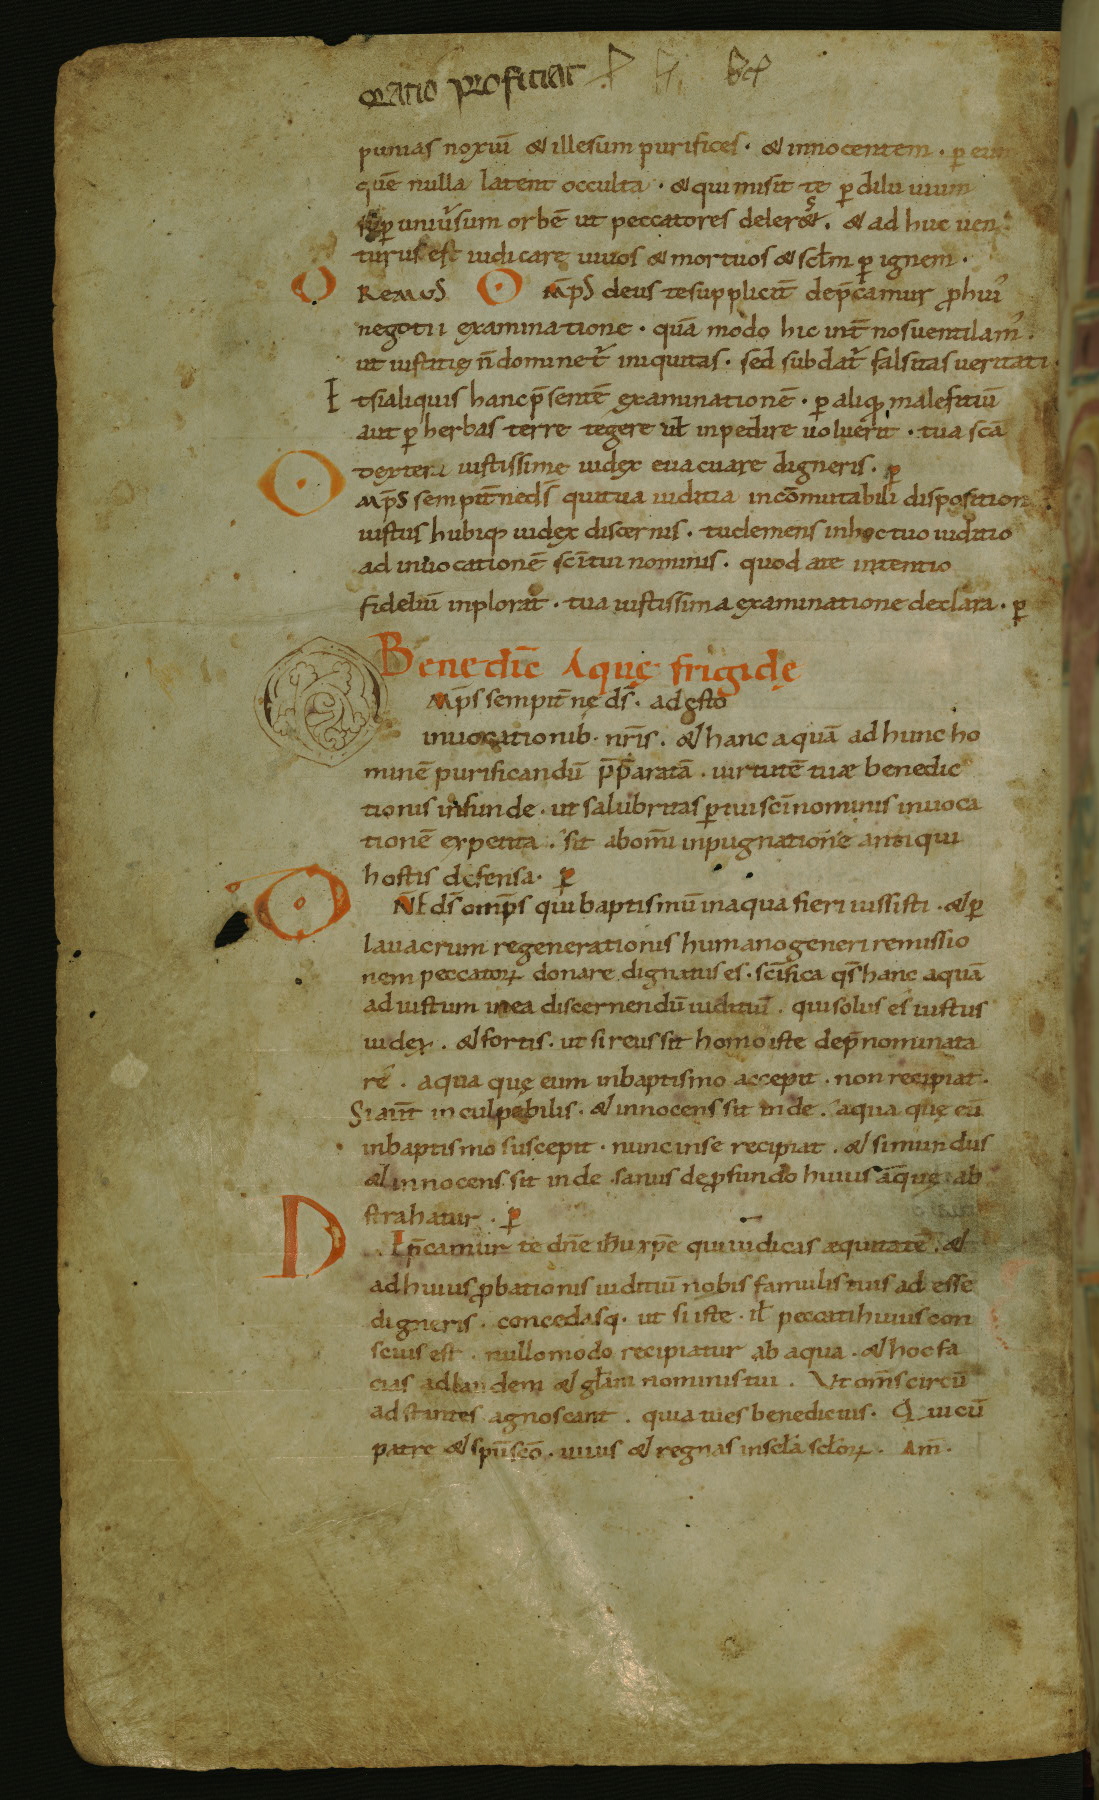 oratio proficiat
punias noxiū & illesum purifices · & innocentem · ꝑ eum
quē nulla latent occulta · & qui misit te ꝑ diluuium
sup uniu̓sum orbē ut peccatores deler&s · & ad huc uen
turus est iudicare uiuos & mortuos & scl̄m ꝑ ignem ·
OREMUS OMP̄S deus te supplicit̄ dep̄camur ꝓ hui̓
negotii examinatione · quā modo hic int̄ nos uentilam̓ ·
ut iustitię n̄ dominet̄ iniquitas · sed subdat̄ falsitas ueritati ·
Etsi aliquis hanc p̄sentē examinationē · ꝑ aliqđ malefitiū
aut ꝑ herbas terre tegere ul̄ inpedire uoluerit · tua scā
dextera iustissime iudex euacuare digneris · ꝑ
OMP̄S sempit̄ne ds̄ qui tua iuditia incōmutabili disposition
iustus hubiq; iudex discernis · tu clemens in hoc tuo iuditio
ad inuocationē scī tui nominis · quod a te intentio
fidelium inplorat · tua iustissima examinatione declara · ꝑ
Benedic̄ Aquę frigidę
OMp̄s sempit̄ne ds̄ · adesto
inuocationib · nr̄is · & hanc aquā ad hunc ho
minē purificandū p̄p̄aratā · uirtutē tuæ benedic
tionis infunde · ut salubritas ꝑ tui scī nominis inuoca
tionē expetita · sit ab om̄i inpugnatione antiqui
hostis defensa · ꝑ
OM̄t ds̄ omp̄s qui baptismū in aqua fieri iussisti · & ꝑ
lauacrum regenerationis humano generi remissio
nem peccatoꝝ donare dignatus es · scīfica qs̄ hanc aquā
ad iustum in ea discernendū iuditiū · qui solus es iustus
iudex · & fortis · ut si reus sit homo iste de p̄nominata
re · aqua quę eum in baptismo accepit · non recipiat ·
Si aut̄ inculpabilis · & innocens sit inde · aqua quę eū
in baptismo suscepit · nunc in se recipiat · & si mundus
& innocens sit inde · sanus de ꝓfundo huius aquę ab
strahatur · ꝑ
DEp̄camur te dn̄e ih̄u xp̄e qui iudicas æquitatē · &
ad huius ꝓbationis iuditiū nobis famulis tuis ad esse
digneris · concedasq · ut si iste · il̄ peccati huius con
scius est · nullo modo recipiatur ab aqua · & hoc fa
cias ad laudem & gl̄am nominis tui · Ut om̄s circū
adstantes agnoscant · quia tu es benedictus · Qui cū
patre & spū scō · uiuis & regnas in scl̄a scl̄oꝝ · Am̄ ·